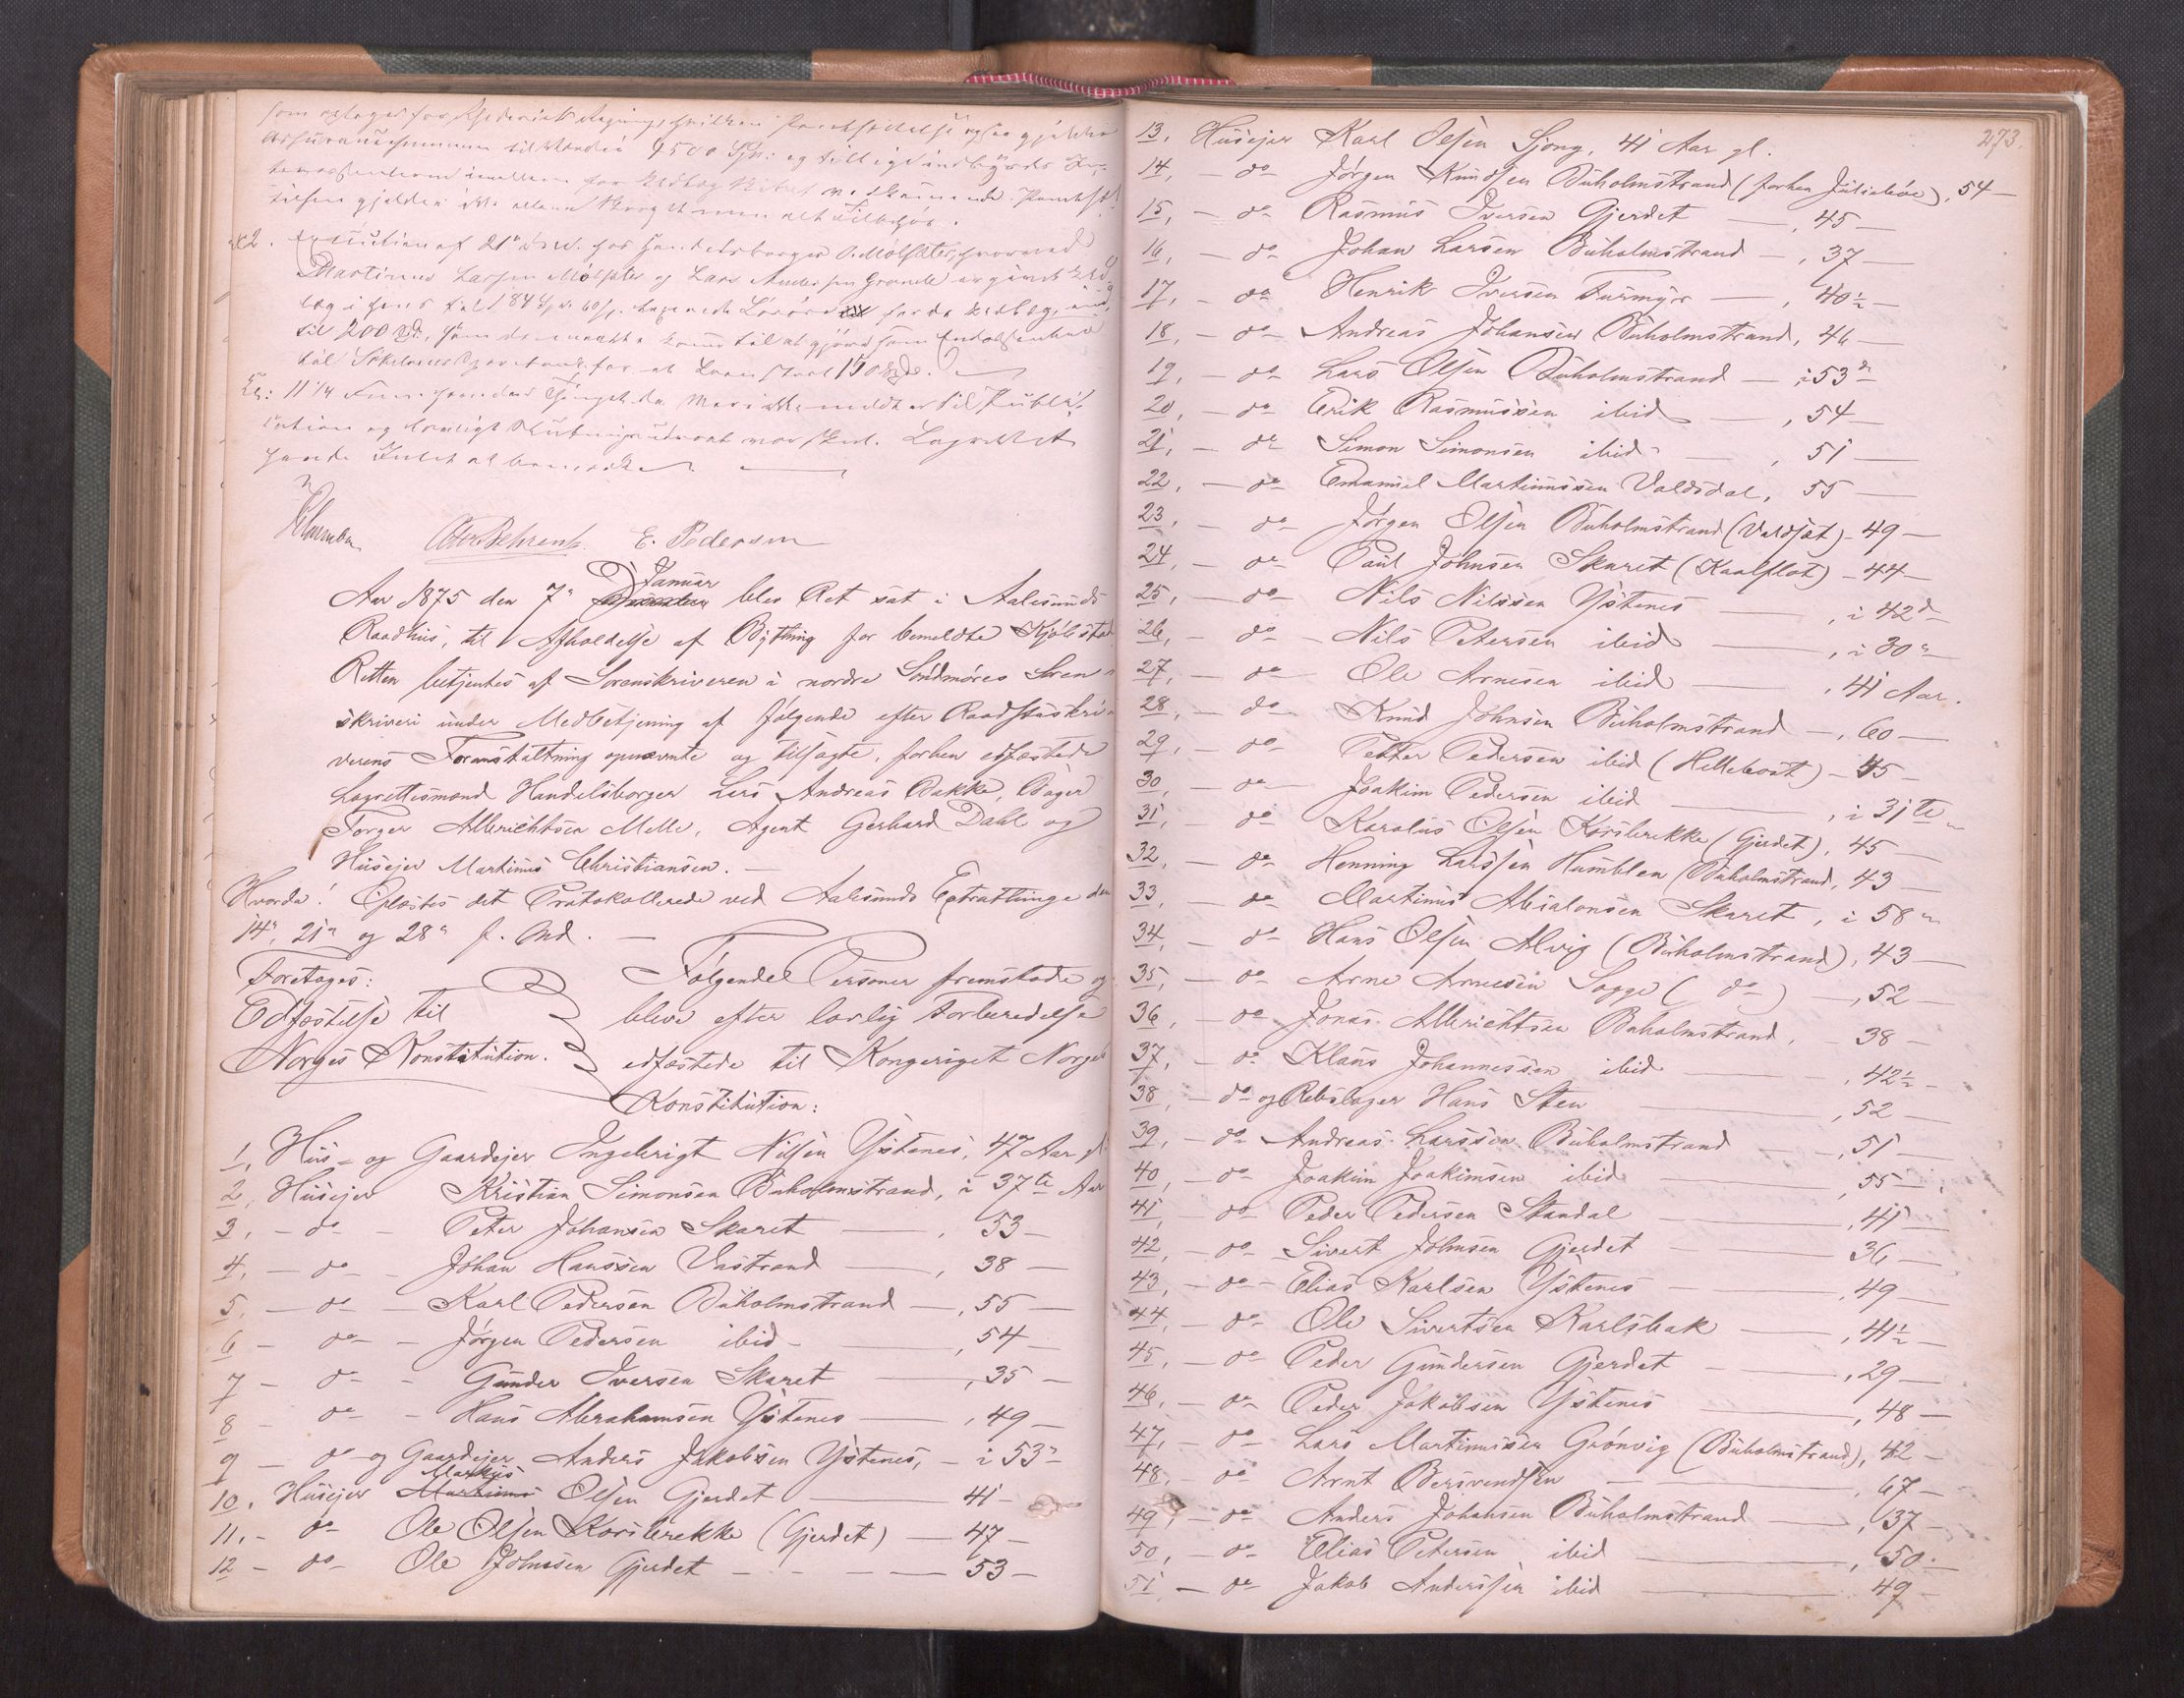 Assurancesummen 9500 Spd: og
Execution af 21 hos Handelsborger O. Molsæter, hvorved
Martinus Larsen Molsæter og Lars Andersen
til 200 Spd.
Kl: 11¼
Otto Behrens. E. Pedersen
Januar
Aar 1875 den 7" blev Ret sat i Aalesunds
Raadhus, til Afholdelse af Bything for bemeldte Kjøbstad
Retten betjentes af Sorenskriveren i nordre Søndmøres Soren-
skriveri under Medbetjening af følgende efter Raadstuskri-
verens Foranstaltning opnævnte og tilsagte, forhen edfæstede
Lagrettesmænd Handelsborger Lars Andreas Bakke, Bager
Torger Albrichtsen Melle, Agent Gerhard Dahl og
Husejer Martinus Christiansen. —
Hvorda! Oplæstes det Protokollerede ved Aalesunds Extrattinge den
14", 21" og 28" f. Md. —
Foretoges: Følgende Personer fremstode og
Edfæstelse til bleve efter lovlig Forberedelse
Norges Konstitution. edfæstede til Kongeriget Norges
Konstitution:
1, Hus- og Gaardejer Ingebrigt Nilsen Ystenes, 47 Aar gl
2, Husejer Kristian Simonsen Buholmstrand, i 37te Aar
3, — do — Peter Johansen Skaret —, 53 —
4, — do — Johan Hanssen Vastrand —, 38 —
5, — do — Karl Pedersen Buholmstrand —, 55 —
6 — do — Jørgen Pedersen ibid —, 54 —
7 — do — Gunder Iversen Skaret —, 35 —
8 — do — Hans Abrahamsen Ystenes —, 49 —
9 — do og Gaardejer Anders Jakobsen Ystenes, — i 53"
Markus
10, Husejer Martinus Olsen Gjerdet — 41 —
11, — do — Ole Olsen Korsbrekke (Gjerdet) — 47 —
12 — do — Ole Johnsen Gjerdet — 53 —
273.
13, Husejer Karl Olsen Sjong, 41 Aar gl.
14, — do Jørgen Knudsen Buholmstrand (forhen Juliebøe), 54 —
15, — do — Rasmus Iversen Gjerdet —, 45 —
16, — do Johan Larsen Buholmstrand —, 37 —
17, — do Henrik Iversen Furmyr —, 40½ —
18, — do — Andreas Johansen Buholmstrand, 46 —
19, — do — Lars Olsen Buholmstrand — i 53de
20, — do — Erik Rasmussen ibid —, 54 —
21, — do Simon Simonsen ibid —, 51 —
22, — do — Emanuel Martinussen Valdsdal, 55 —
23, — do — Jørgen Olsen Buholmstrand (Valdsæt) — 49 —
24, — do — Paul Johnsen Skaret (Kaalflot) — 44 —
25, — do — Nils Nilssen Ystenes —, i 42d
26, — do — Nils Petersen ibid —, i 30"
27, — do — Ole Arnesen ibid —, 41 Aar.
28, — do — Knud Johnsen Buholmstrand —, 60 —
29, — do Petter Pedersen ibid (Hellebost) — 45 —
30, — do — Joakim Pedersen ibid —, i 31te
31, — do Karolus Olsen Korsbrekke (Gjerdet), 45 —
32, — do — Henning Larssen Humblen (Buholmstrand, 43 —
33, — do — Martinus Absalonsen Skaret, i 58"
34, — do — Hans Olsen Alvig (Buholmstrand), 43 —
35, — do — Arne Arnesen Sogge ( do ) —, 52 —
36, — do Jonas Albrichtsen Buholmstrand, — 38 —
37, — do Klaus Johannessen ibid —, 42½ —
38, — do og Rebslager Hans Sten —, 52 —
39, — do — Andreas Larssen Buholmstrand —, 51 —
40, — do — Joakim Joakimsen ibid —, 55 —
41, — do — Peder Pedersen Standal —, 41 —
42, — do — Sivert Johnsen Gjerdet — 36 —
43, — do — Elias Karlsen Ystenes —, 49 —
44, — do — Ole Sivertsen Karlsbak —, 41½ —
45, — do Peder Gundersen Gjerdet —, 29 —
46, — do Peder Jakobsen Ystenes —, 48 —
47, — do — Lars Martinussen Grønvig (Buholmstrand), 42 —
48, — do Arnt Bersvendsen —, 67 —
49, — do — Anders Johansen Buholmstrand —, 37 —
50, — do — Elias Petersen ibid —, 50 —
51 — do Jakob Anderssen ibid — 49 —